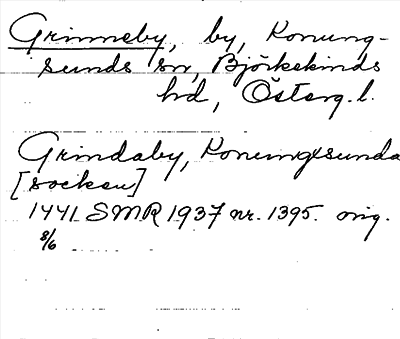 Grinneby, by, Konung-
sunds sn, Björkekinds
hd, Österg. l.
Grindaby, Koningxsunda
[socken]
1441 SMR 1937 nr. 1395. orig.
8/6